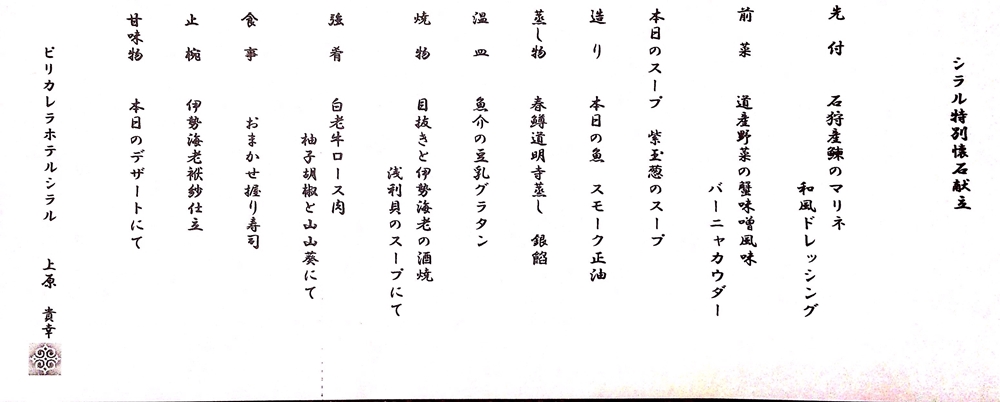 シラル特別懐石献立
先付 石狩産鰊のマリネ
和風ドレッシング
前菜 道産野菜の蟹味噌風味
バーニャカウダー
本日のスープ 紫玉葱のスープ
造り 本日の魚 スモーク正油
蒸し物 春鱒道明寺蒸し 銀餡
温皿 魚介の豆乳グラタン
焼物 目抜きと伊勢海老の酒焼
浅利貝のスープにて
強肴 白老牛ロース肉
柚子胡椒と山山葵にて
食事 おまかせ握り寿司
止椀 伊勢海老袱紗仕立
甘味物 本日のデザートにて
ピリカレラホテルシラル 上原 貴幸